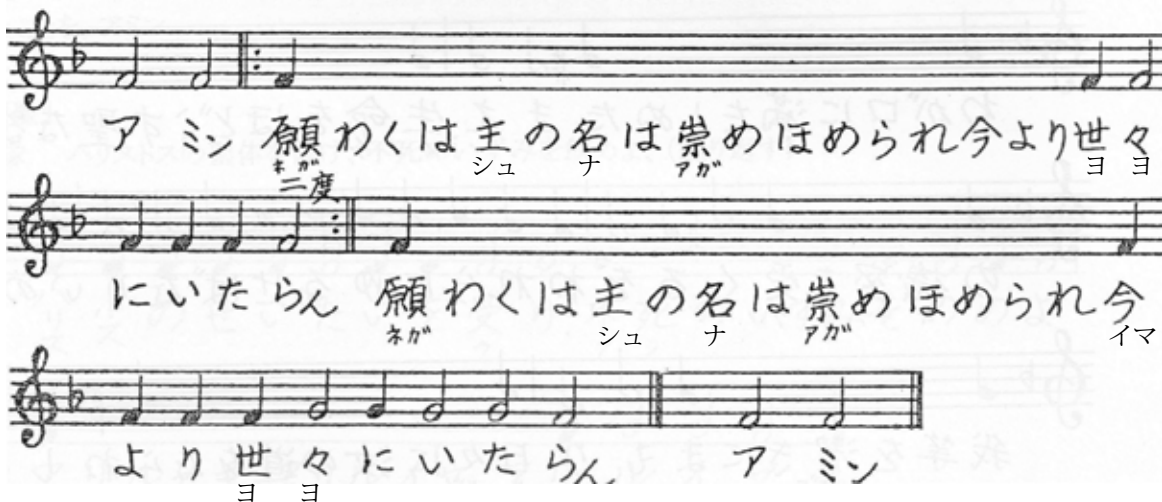 アミン 願わくは主の名は崇めほめられ今より世々
ネガ シュ ナ アガ ヨ ヨ
二度
にいたらん 願わくは主の名は崇めほめられ今
ネガ シュ ナ アガ イマ
より世々にいたらん アミン
ヨ ヨ